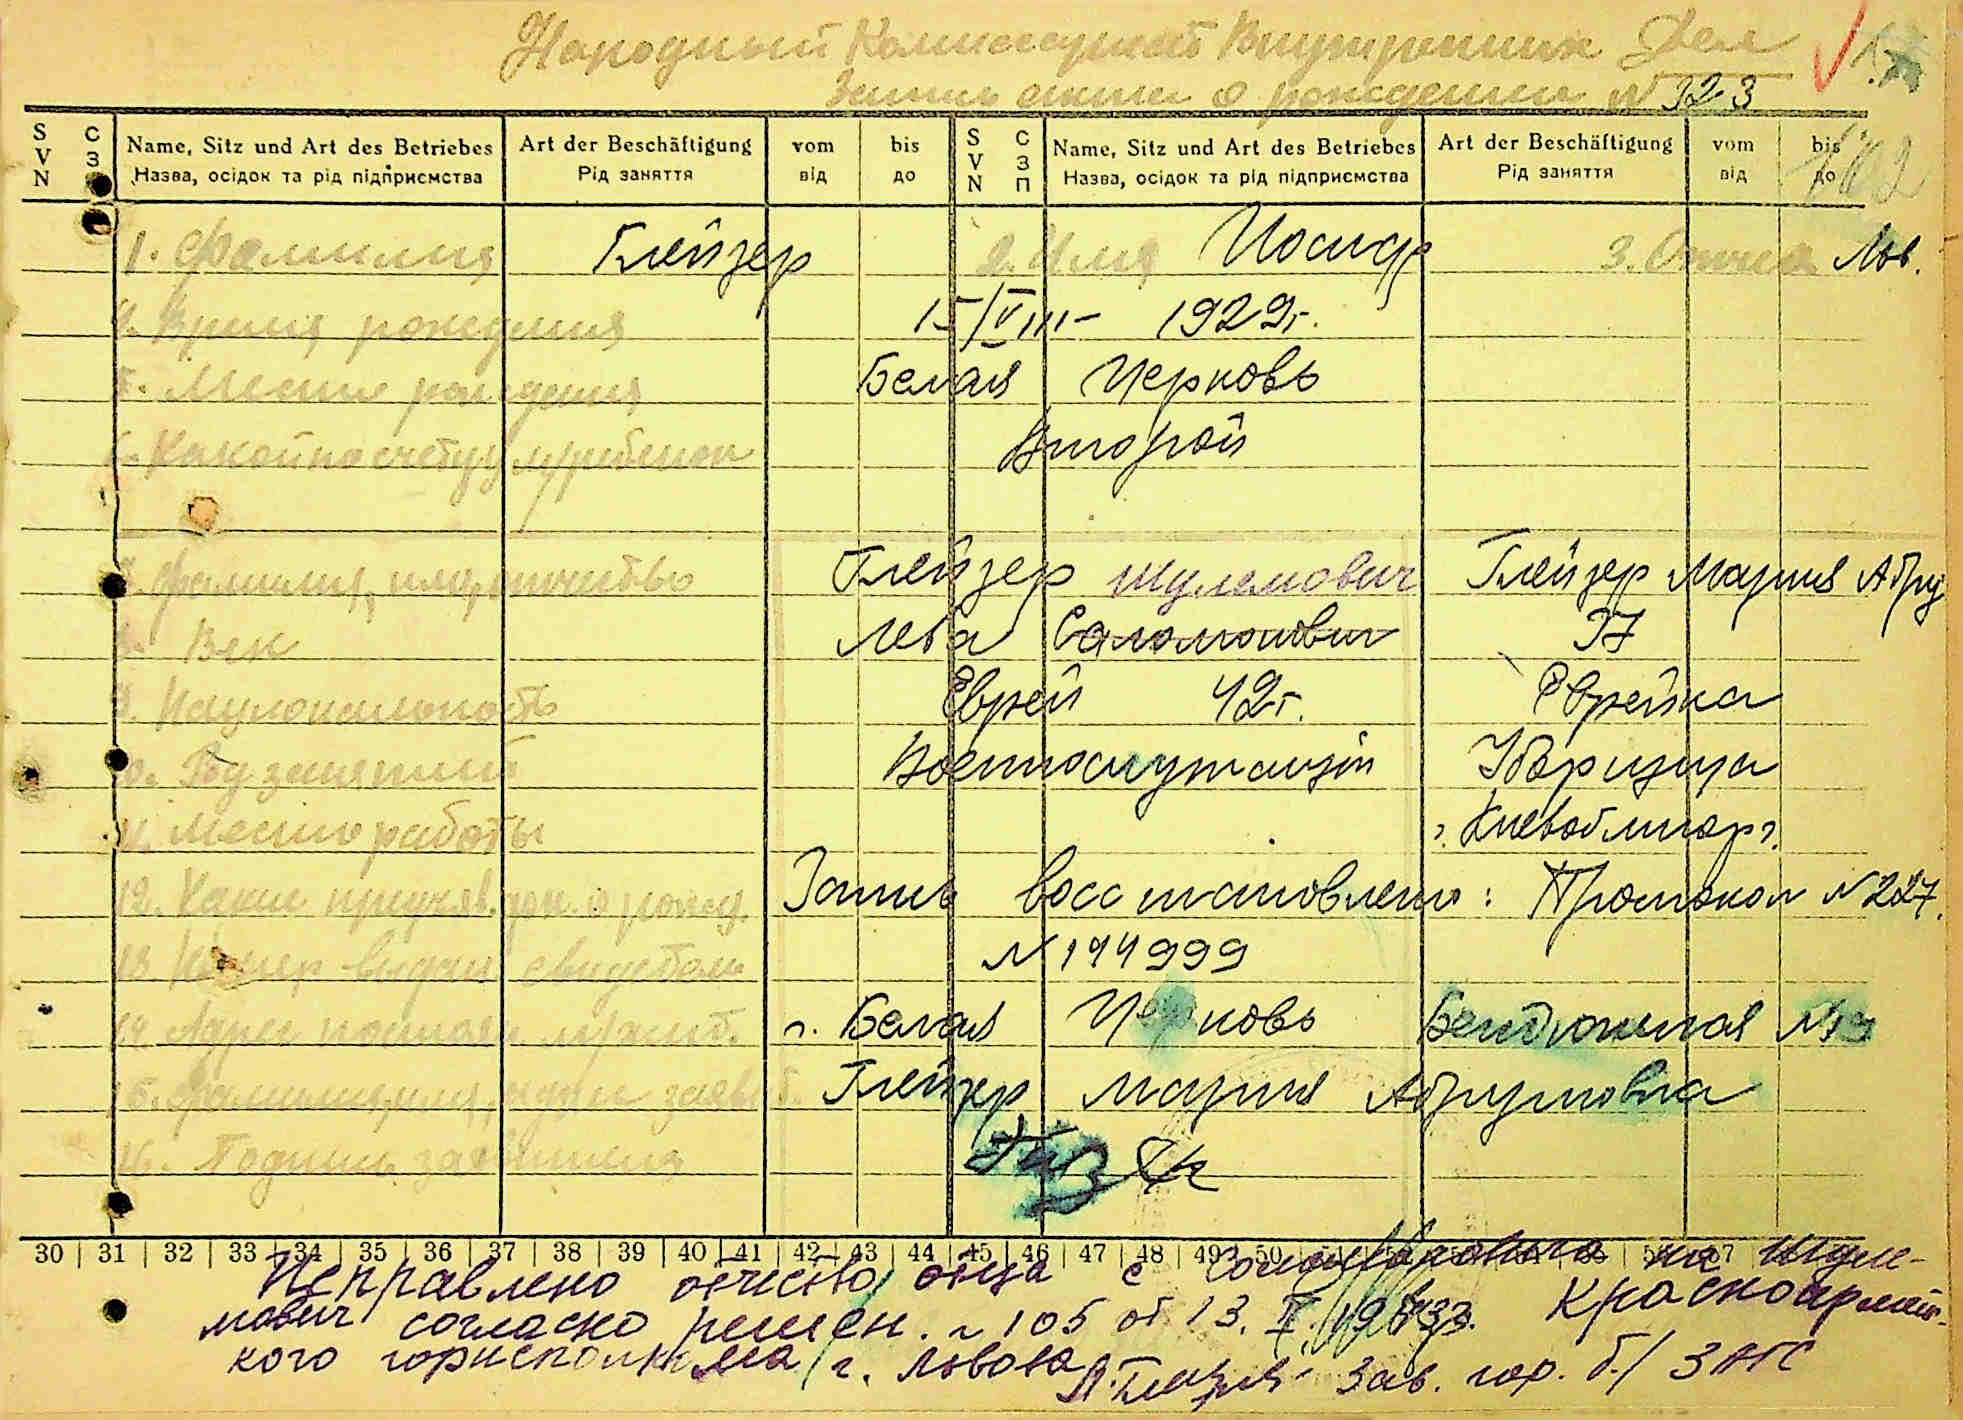 Народный Комиссариат Внутренних Дел
Запись акта о рождении № 323
SVN СЗП Name, Sitz und Art des Betriebes Art der Beschäftigung vom bis SVN СЗП Name, Sitz und Art des Betriebes Art der Beschäftigung vom bis
Назва, осідок та рід підприємства Рід заняття від до Назва, осідок та рід підприємства Рід заняття від до
1. Фамилия Глейзер 2. Имя Иосиф 3. Отчес. Льв.
4. Время рождения 15/VIII- 1929г.
5. Место рождения Белая Церковь
6. Какой по счету у м/ребенок Второй
7. Фамилия, имя, отчество Глейзер Шулемович Глейзер Мария Абру
8. Век Лева Соломонович 37
9. Национальность Еврей 42г. Еврейка
10. Род занятий Военнослужащий Уборщица
11. Место работы "Киевоблторг"
12. Какие предъяв. док. о рожд. Запись восстановлено: Протокол № 227.
13. Номер выдан свидетель № 144999
14. Адрес постоян. м/жит. г. Белая Церковь №13
15. Фамилия, имя, адрес заявит. Глейзер Мария Абрумовна
16. Подпись заявителя
30 31 32 33 34 35 36 37 38 39 40 41 42 43 44 45 46 47 48 49 50
Исправлено отчество отца с Соломоновича на Шуле-
мович согласно решен. № 105 от 13. Красноармейс-
кого горисполкома г. Львова Зав. гор. б./ ЗАГС